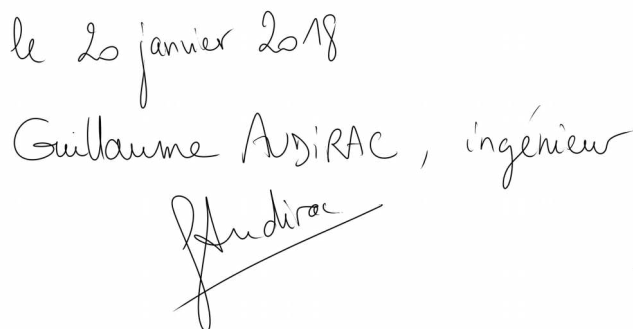 le 20 janvier 2018
Guillaume AUDIRAC, ingénieur
GAudirac